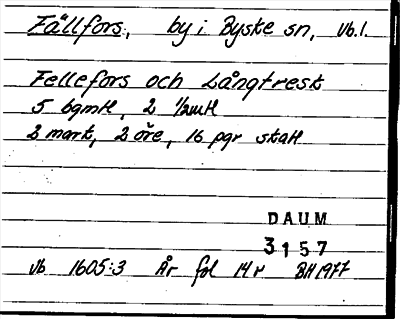 Fällfors, by i Byske sn, Vb.l.
Fellefors och Långtresk
5 bgmH, 2 1/2mH
2 mark, 2 öre, 16 pgr skatt
DAUM
3157
Vb 1605:3 År fol 14r BH 1977